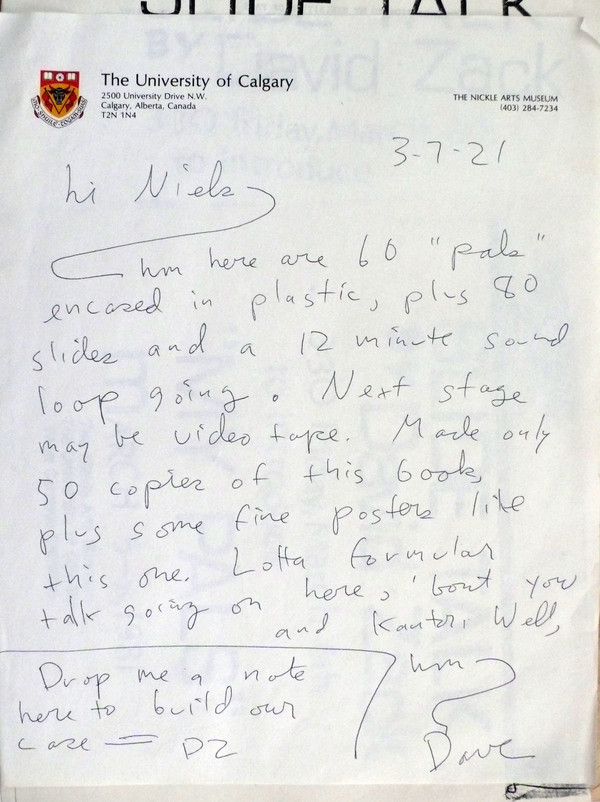 SLIDE TALK
BY David Zack
The University of Calgary
2500 University Drive N.W.
Calgary, Alberta, Canada
T2N 1N4
THE NICKLE ARTS MUSEUM
(403) 284-7234
3-7-21
hi Niels
hm here are 60 "pals"
encased in plastic, plus 80
slides and a 12 minute sound
loop going. Next stage
may be video tape. Made only
50 copies of this book,
plus some fine posters like
this one. Lotta formular
talk going on here, 'bout you
and Kantor. Well,
hm
Dave
Drop me a note
here to build our
case = DZ